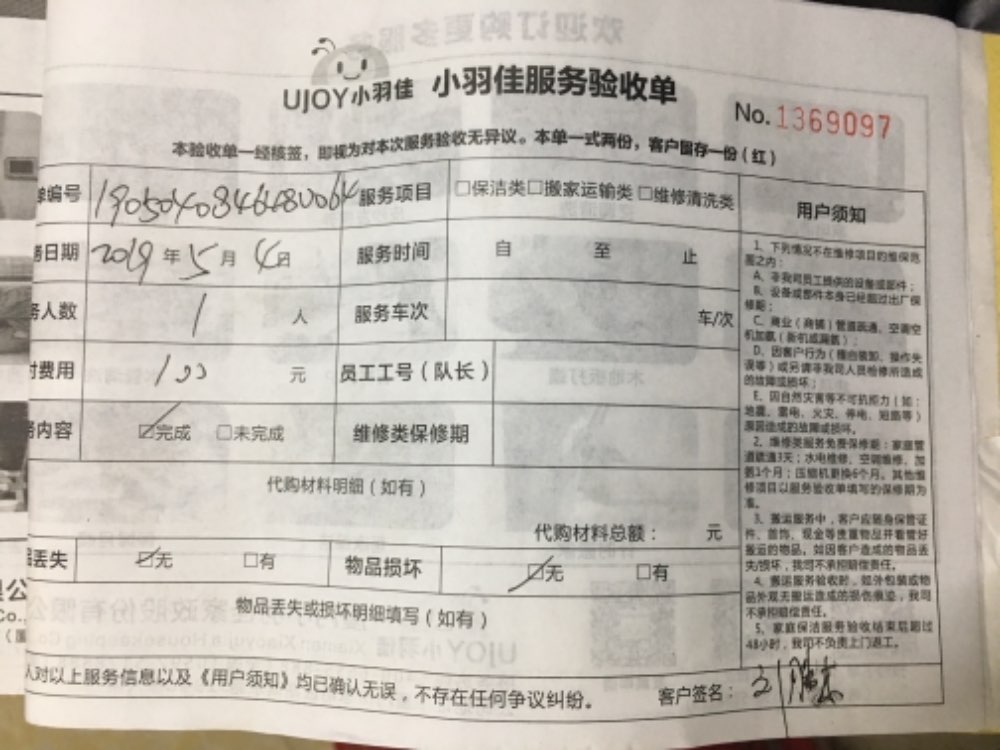 UJOY小羽佳 小羽佳服务验收单
No.1369097
本验收单一经核签，即视为对本次服务验收无异议。本单一式两份，客户留存一份（红）
单编号 服务项目 □保洁类□搬家运输类□维修清洗类
务日期 2019年5月4日 服务时间 自 至 止
务人数 1 人 服务车次 车/次
付费用 100 元 员工工号（队长）
务内容 ☑完成 □未完成 维修类保修期
代购材料明细（如有）
代购材料总额： 元
品丢失 ☑无 □有 物品损坏 ☑无 □有
物品丢失或损坏明细填写（如有）
人对以上服务信息以及《用户须知》均已确认无误，不存在任何争议纠纷。 客户签名：
用户须知
1、下列情况不在维修项目的维保范
围之内：
A、非我司员工提供的设备或部件；
B、设备或部件本身已经超过出厂保
修期；
C、商业（商铺）管道疏通、空调空
机加氨（新机或漏氨）；
D、因客户行为（擅自装卸、操作失
误等）或另请非我司人员检修所造成
的故障或损坏；
E、因自然灾害等不可抗拒力（如：
地震、雷电、火灾、停电、短路等）
原因造成的故障或损坏。
2、维修类服务免费保修期：家庭管
道疏通3天；水电维修、空调维修、加
氨1个月；压缩机更换6个月。其他维
修项目以服务验收单填写的保修期为
准。
3、搬运服务中，客户应随身保管证
件、首饰、现金等贵重物品并看管好
搬运的物品。如因客户造成的物品丢
失/损坏，我司不承担赔偿责任。
4、搬运服务验收时，如外包装或物
品外观无搬运造成的损伤痕迹，我司
不承担赔偿责任。
5、家庭保洁服务验收结束后超过
48小时，我司不负责上门返工。